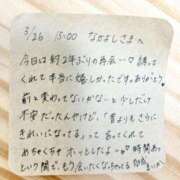 3/26 15:00 なかよしさまへ
今日は約2年ぶりの再会…♡ 誘って
くれて本当に嬉しかったです。ありがとう♥
前と変わってないかな…と少しだけ
不安だったんやけど、「昔よりもさらに
きれいになってる」って 言ってくれて
めちゃくちゃ ホッとしたよ…♡♡ 時間あっ
という間で、もう会いたくなってる